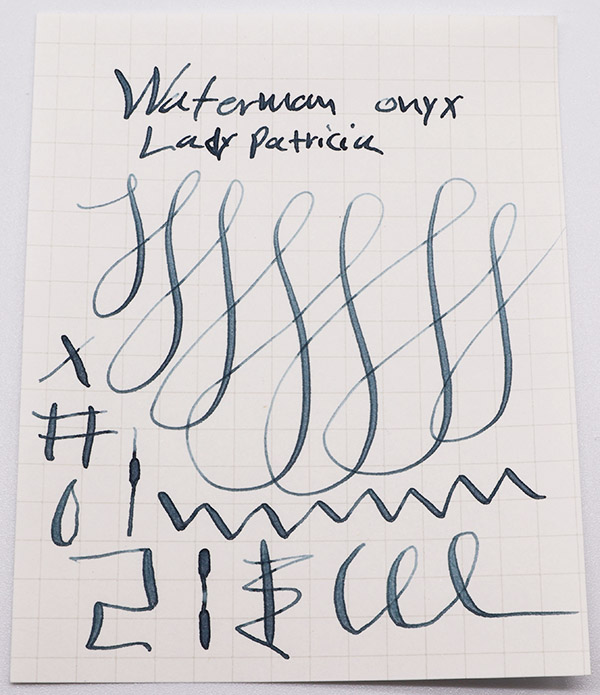 Waterman onyx
Lady Patricia
x
#
0